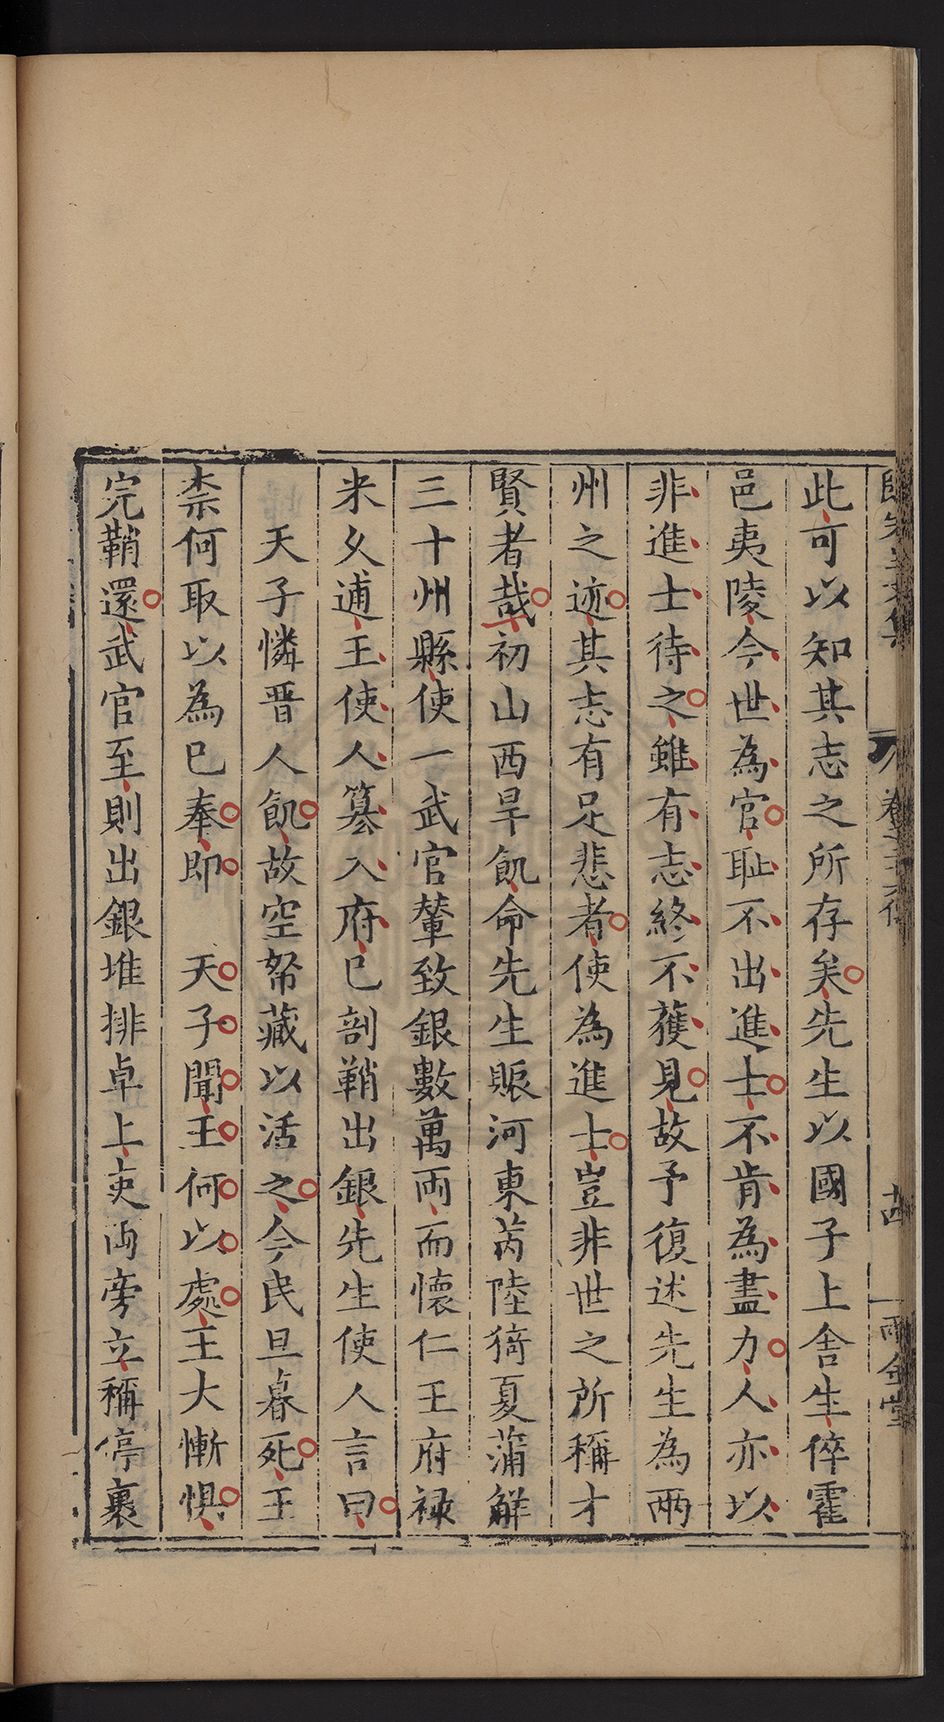 此可以知其志之所存矣先生以國子上舍生倅霍
邑夷陵今世為官耻不出進士不肯為盡力人亦以
非進士待之雖有志終不獲見故予復述先生為兩
州之迹其志有足悲者使為進士豈非世之所稱才
賢者哉初山西旱飢命先生賑河東芮陸猗夏蒲觧
三十州縣使一武官輦致銀數萬両而懷仁王府禄
米久逋王使人篡入府已剖鞘出銀先生使人言曰
天子憐晋人飢故空帑藏以活之今民旦暮死王
柰何取以為已奉即 天子聞王何以處王大慚懼
完鞘還武官至則出銀堆排卓上吏両旁立稱停裹